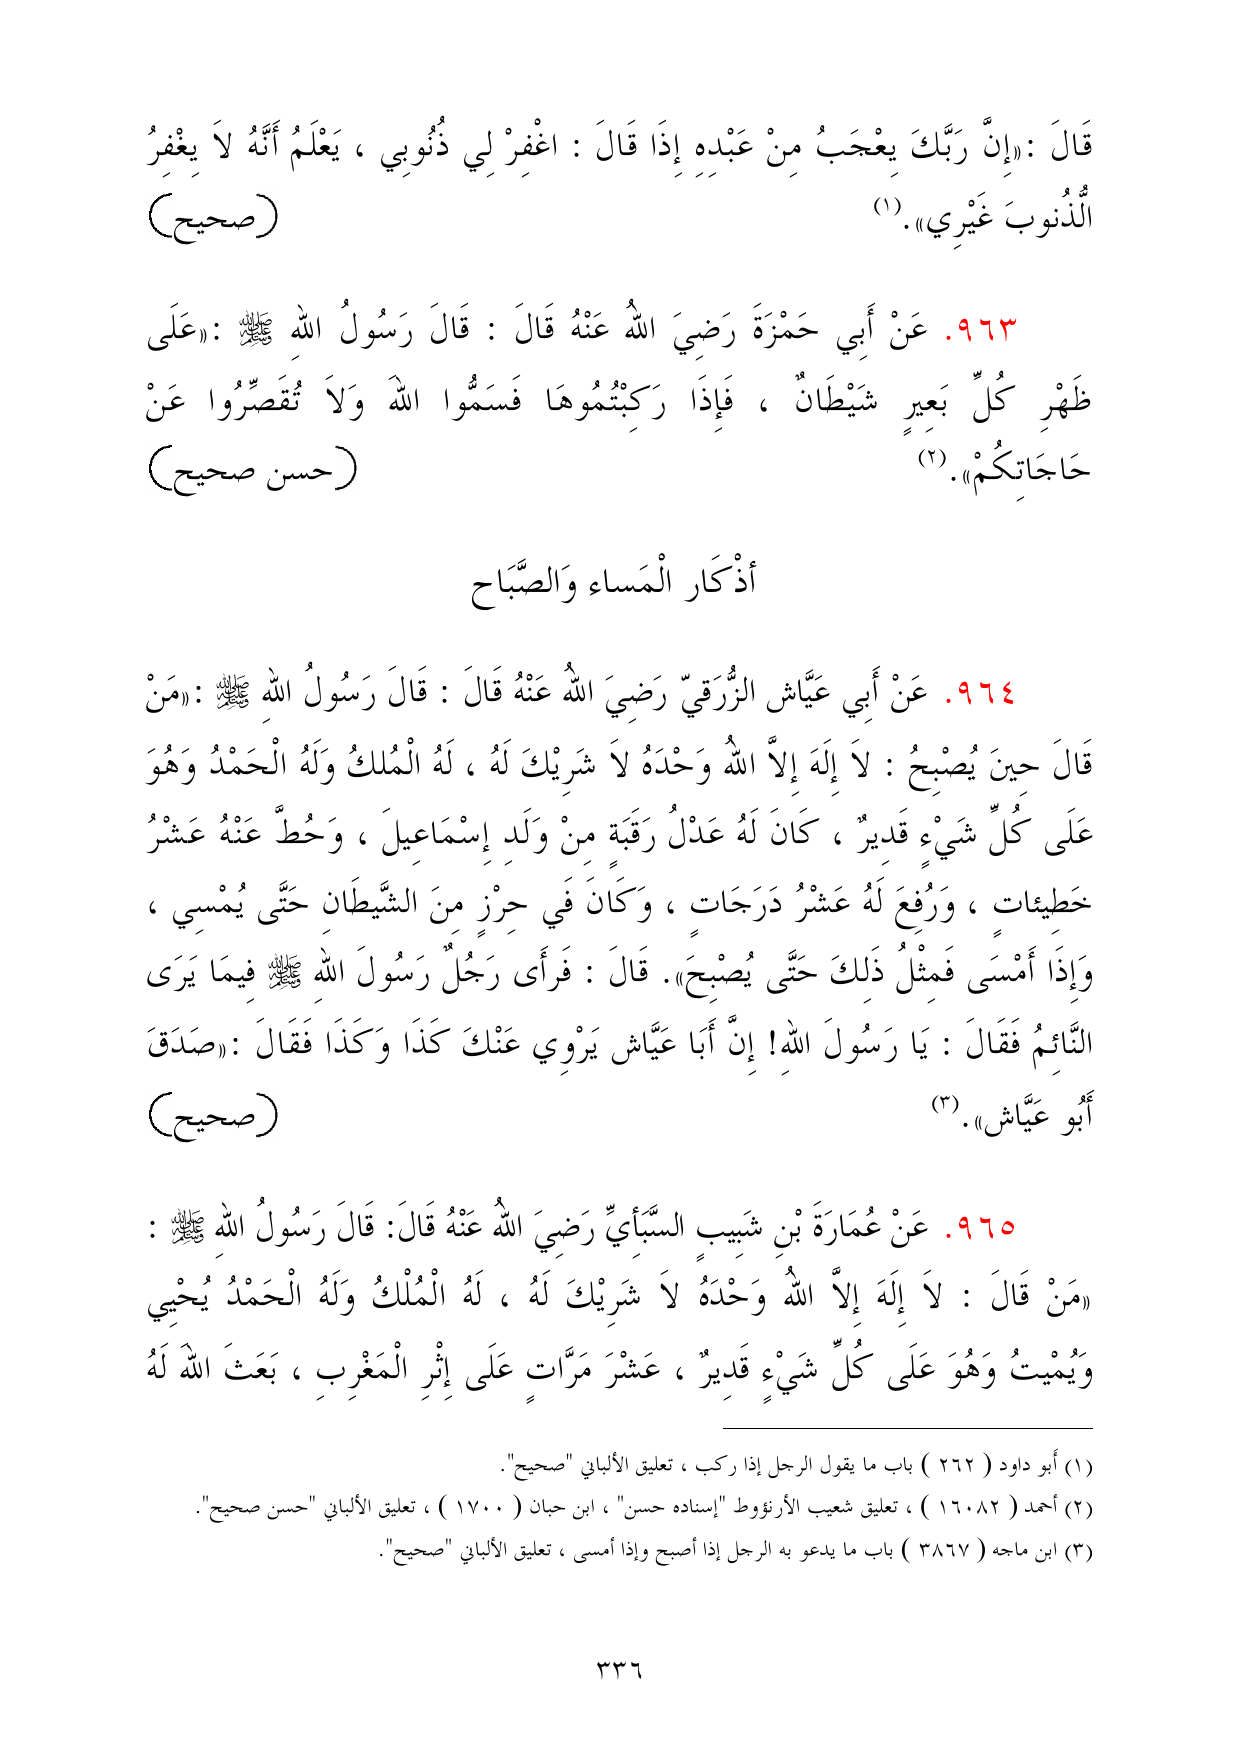 قَالَ :«إِنَّ رَبَّكَ يِعْجَبُ مِنْ عَبْدِهِ إِذَا قَالَ : اغْفِرْ لِي ذُنُوبِي ، يَعْلَمُ أَنَّهُ لاَ يِغْفِرُ
الُّذُنوبَ غَيْرِي».(١) (صحيح)
٩٦٣. عَنْ أَبِي حَمْزَةَ رَضِيَ اللهُ عَنْهُ قَالَ : قَالَ رَسُولُ اللهِ ﷺ :«عَلَى
ظَهْرِ كُلِّ بَعِيرٍ شَيْطَانٌ ، فَإِذَا رَكِبْتُمُوهَا فَسَمُّوا اللهَ وَلاَ تُقَصِّرُوا عَنْ
حَاجَاتِكُمْ».(٢) (حسن صحيح)
أذْكَار الْمَساء وَالصَّبَاح
٩٦٤. عَنْ أَبِي عَيَّاش الزُّرَقيّ رَضِيَ اللهُ عَنْهُ قَالَ : قَالَ رَسُولُ اللهِ ﷺ :«مَنْ
قَالَ حِينَ يُصْبِحُ : لاَ إِلَهَ إِلاَّ اللهُ وَحْدَهُ لاَ شَرِيْكَ لَهُ ، لَهُ الْمُلكُ وَلَهُ الْحَمْدُ وَهُوَ
عَلَى كُلِّ شَيْءٍ قَدِيرٌ ، كَانَ لَهُ عَدْلُ رَقَبَةٍ مِنْ وَلَدِ إِسْمَاعِيلَ ، وَحُطَّ عَنْهُ عَشْرُ
خَطِيئاتٍ ، وَرُفِعَ لَهُ عَشْرُ دَرَجَاتٍ ، وَكَانَ فَي حِرْزٍ مِنَ الشَّيطَانِ حَتَّى يُمْسِي ،
وَإِذَا أَمْسَى فَمِثْلُ ذَلِكَ حَتَّى يُصْبِحَ». قَالَ : فَرأَى رَجُلٌ رَسُولَ اللهِ ﷺ فِيمَا يَرَى
النَّائِمُ فَقَالَ : يَا رَسُولَ اللهِ! إِنَّ أَبَا عَيَّاش يَرْوِي عَنْكَ كَذَا وَكَذَا فَقَالَ :«صَدَقَ
أَبُو عَيَّاش».(٣) (صحيح)
٩٦٥. عَنْ عُمَارَةَ بْنِ شَبِيبٍ السَّبَأيِّ رَضِيَ اللهُ عَنْهُ قَالَ: قَالَ رَسُولُ اللهِ ﷺ :
«مَنْ قَالَ : لاَ إِلَهَ إِلاَّ اللهُ وَحْدَهُ لاَ شَرِيْكَ لَهُ ، لَهُ الْمُلْكُ وَلَهُ الْحَمْدُ يُحْيِي
وَيُمْيتُ وَهُوَ عَلَى كُلِّ شَيْءٍ قَدِيرٌ ، عَشْرَ مَرَّاتٍ عَلَى إِثْرِ الْمَغْرِبِ ، بَعَثَ اللهَ لَهُ
(١) أَبو داود ( ٢٦٢ ) باب ما يقول الرجل إذا ركب ، تعليق الألباني "صحيح".
(٢) أحمد ( ١٦٠٨٢ ) ، تعليق شعيب الأرنؤوط "إسناده حسن" ، ابن حبان ( ١٧٠٠ ) ، تعليق الألباني "حسن صحيح".
(٣) ابن ماجه ( ٣٨٦٧ ) باب ما يدعو به الرجل إذا أصبح وإذا أمسى ، تعليق الألباني "صحيح".
٣٣٦